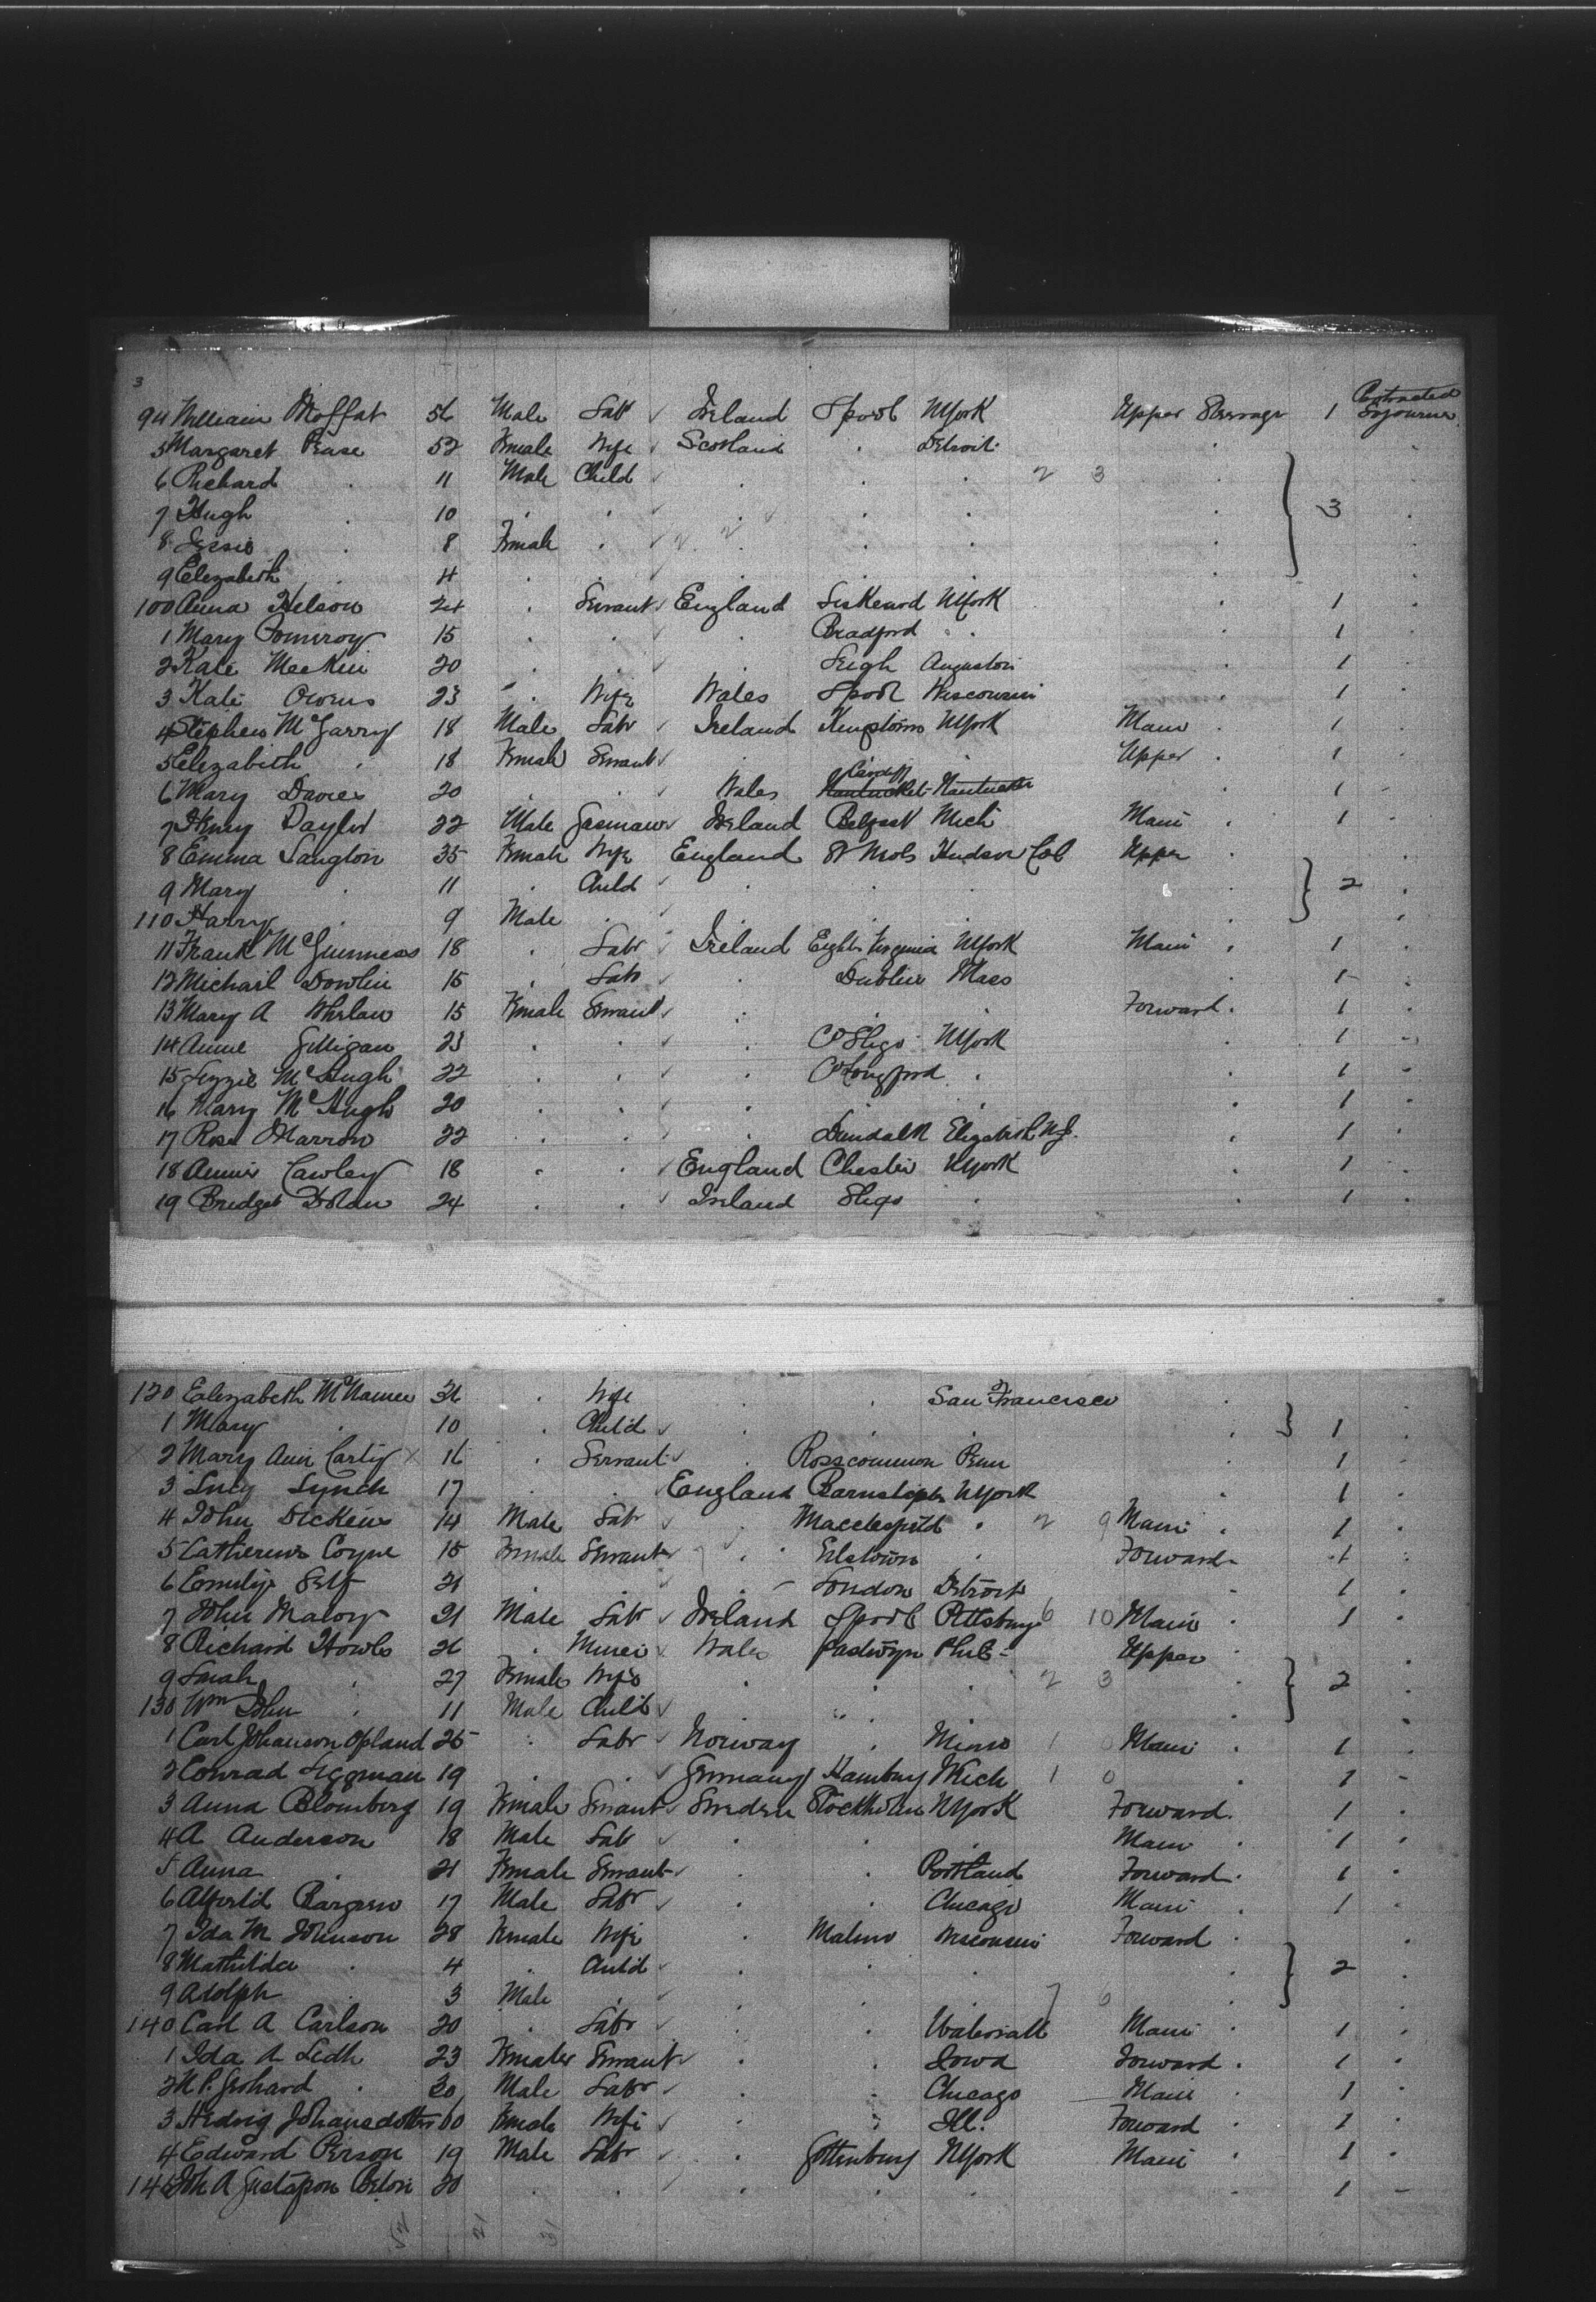 3
94 William Moffat 56 Male Labr ✓ Ireland Lpool NYork Upper Steerage 1 Protracted Sojourn
5 Margaret Pease 52 Female Wife ✓ Scotland . Detroit .
6 Richard . 11 Male Child ✓ . . . 2 3 .
7 Hugh . 10 . . ✓ . . . . 3
8 Jessie . 8 Female . ✓ . . . .
9 Elizabeth . 4 . . ✓ . . . .
100 Anna Nelson 24 . Servant ✓ England Liskeard NYork . 1
1 Mary Pomeroy 15 . . ✓ . Bradford . . 1
2 Kate Meekin 20 . . ✓ . Leigh . 1
3 Kate Owens 23 . Wife Wales Lpool Wisconsin . 1
4 Stephen McGarry 18 Male Labr ✓ Ireland Kingstown NYork Main . 1
5 Elizabeth . 18 Female Servant ✓ . . . Upper . 1
6 Mary Davies 20 . . ✓ Wales Cardiff Nantucket Nantucket . 1
7 Henry Taylor 22 Male ✓ Ireland Belfast Mich Main . 1
8 Emma Langton 35 Female Wife England Hudson Upper .
9 Mary . 11 . Child ✓ . . . . 2
110 Harry . 9 Male . ✓ . . . .
11 Frank McGuinness 18 . Labr ✓ Ireland Virginia NYork Main . 1
12 Michael Dowlin 15 . Labr . Dublin Mass . 1
13 Mary A Whelan 15 Female Servant ✓ . . . Forward . 1
14 Annie Gilligan 23 . . ✓ . Co Sligo NYork . 1
15 Lizzie McHugh 22 . . ✓ . Co Longford . . 1
16 Mary McHugh 20 . . ✓ . . . . 1
17 Rose Marron 22 . . ✓ . Dundalk Elizabeth N.J. . 1
18 Annie Cawley 18 . . ✓ England Chester NYork . 1
19 Bridget Dolan 24 . . ✓ Ireland Sligo . . 1
120 Elizabeth McNamee 36 . Wife . . San Francisco .
1 Mary . 10 . Child ✓ . . . . 1
2 Mary Ann Carty 16 . Servant ✓ . Rosscommon Penn . 1
3 Lucy Lynch 17 . . England Barnstaple NYork . 1
4 John Dickens 14 Male Labr ✓ . Macclesfield . 2 9 Main . 1
5 Catherine Coyne 15 Female Servant ✓ . . Forward . 1
6 Emily Self 21 . . ✓ . London Detroit . 1
7 John Malory 21 Male Labr ✓ Ireland Lpool Pittsburg 6 10 Main . 1
8 Richard Howls 26 . Miner ✓ Wales Upper .
9 Sarah . 27 Female Wife . . . 2 3 . 2
130 Wm John . 11 Male Child ✓ . . . .
1 Carl Johanson Opland 25 . Labr ✓ Norway . Minn 1 0 Main . 1
2 Conrad Eggman 19 . . ✓ Germany Hamburg Mich 1 0 . 1
3 Anna Blomberg 19 Female Servant ✓ Sweden Stockholm NYork Forward . 1
4 A Anderson 18 Male Labr ✓ . . . Main . 1
5 Anna . 21 Female Servant ✓ . . Portland Forward . 1
6 Bargren 17 Male Labr ✓ . . Chicago Main . 1
7 Ida M Johnson 28 Female Wife . Malmo Wisconsin Forward .
8 Mathilda . 4 . Child ✓ . . . . 2
9 Adolph . 3 Male . ✓ . . . 7 6 .
140 Carl A Carlson 20 . Labr ✓ . . Main . 1
1 Ida A Ledh 23 Female Servant ✓ . . Iowa Forward . 1
2 N P. Gerhard . 30 Male Labr ✓ . . Chicago Main . 1
3 Hedvig Johansdotter 60 Female Wife . . Ill. Forward . 1
4 Edward Person 19 Male Labr ✓ . Gottenburg NYork Main . 1
145 Joh A Gustafson 20 . . ✓ . . . . 1